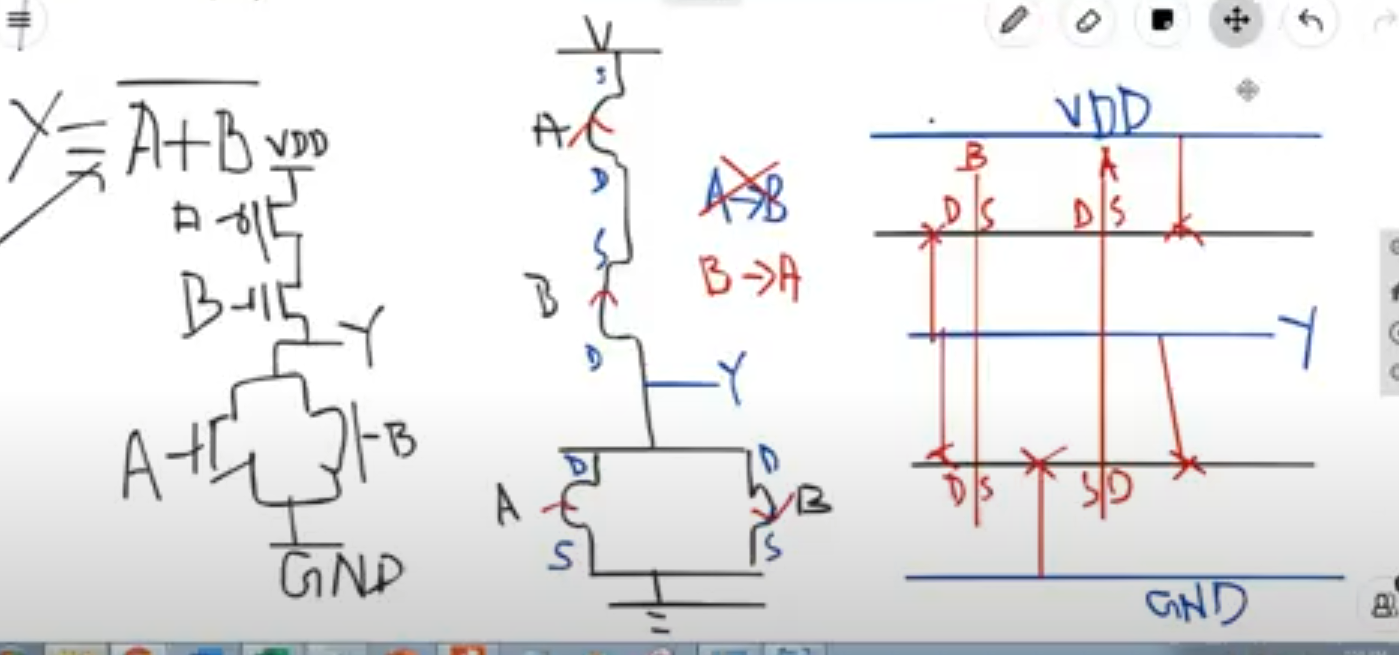 Y = A+B
VDD
A
B
Y
A
B
GND
V
S
A
D
S
B
D
Y
D
D
A
B
S
S
A→B
B→A
VDD
B
A
D S
D S
Y
D S
S D
GND